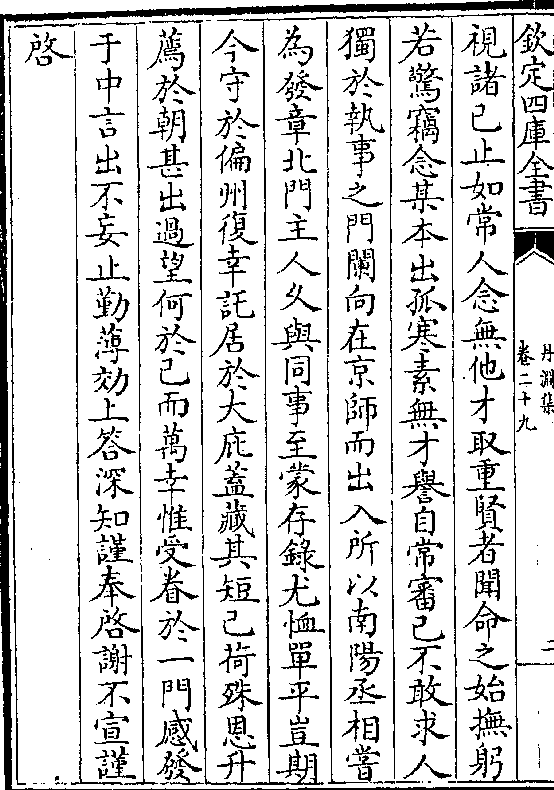 欽定四庫全書
丹淵集
卷二十九
二
視諸己止如常人念無他才取重賢者聞命之始撫躬
若驚竊念某本出孤寒素無才譽自常審己不敢求人
獨於執事之門闌向在京師而出入所以南陽丞相嘗
為發章北門主人久與同事至蒙存錄尤恤單平豈期
今守於偏州復幸託居於大庇蓋藏其短已荷殊恩升
薦於朝甚出過望何於己而萬幸惟受眷於一門感發
于中言出不妄止勤薄效上答深知謹奉啓謝不宣謹
啓